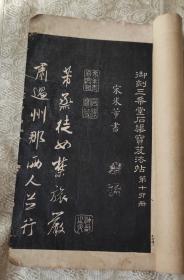 御刻三希堂石渠寶笈法帖 第十四册
宋米芾書
芾蒸徒如禁旅嚴
肅過州郡兩人並行